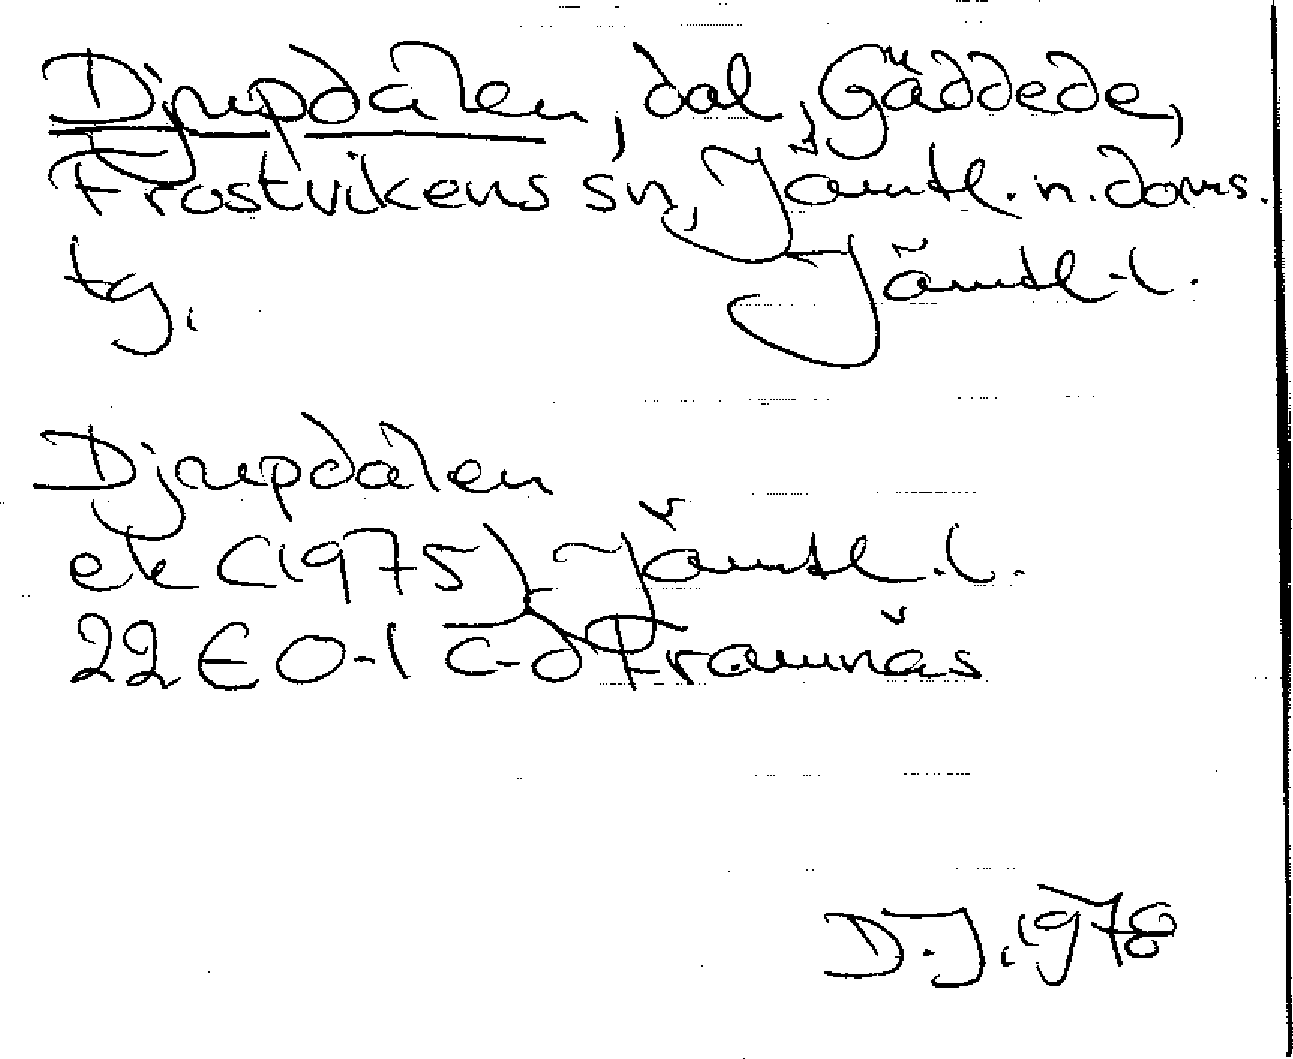 Djupdalen, dal, Gäddede,
Frostvikens sn, Jämtl. n. doms.
tg. Jämtl. l.
Djupdalen
ek (1975), Jämtl. l.
22 E 0-1 c-d Framnäs
D.J. 1978